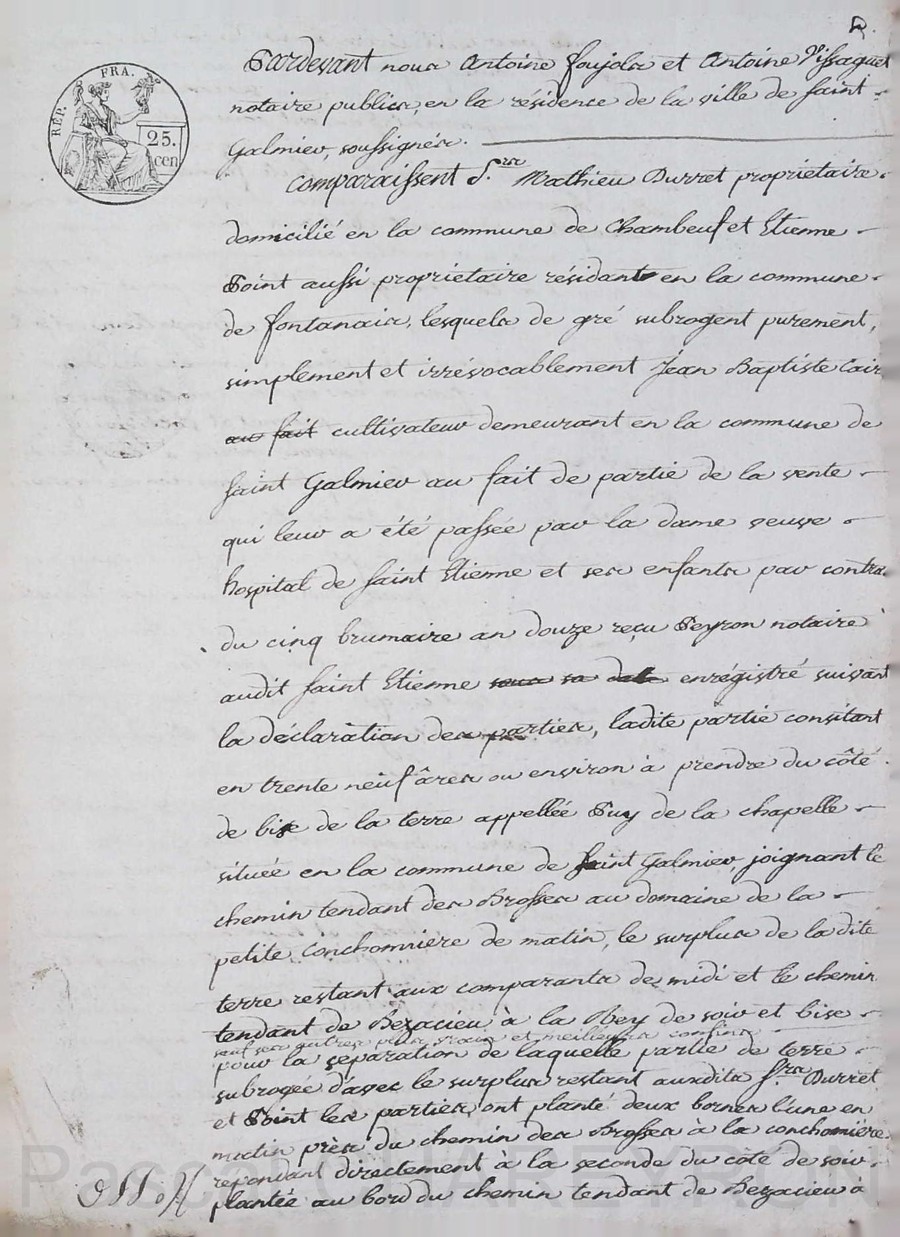 Pardevant nous Antoine Faujols et Antoine Vissaguet
notaires publics, en la résidence de la ville de Saint
Galmier, soussignés.
RÉP. FRA.
25. cen
comparaissent S.rs Mathieu Durret propriétaire
domicilié en la commune de Chambeuf et Etienne
Point aussi propriétaire résidant en la commune
de fontanais, lesquels de gré subrogent purement,
simplement et irrévocablement Jean Baptiste
au fait cultivateur demeurant en la commune de
Saint Galmier au fait de partie de la vente
qui leur a été passée par la dame veuve
hospital de Saint Etienne et ses enfants par contrat
du cinq brumaire an douze reçu Peyron notaire
audit Saint Etienne sous sa date enrégistré suivant
la déclaration des parties, ladite partie consitant
en trente neuf âres ou environ à prendre du côté
de bise de la terre appellée Puy de la chapelle
située en la commune de Saint Galmier, joignant le
chemin tendant des Brosses au domaine de la
petite Conchonniere de matin, le surplus de la dite
terre restant aux comparants de midi et le chemin
tendant de Bezacieu à la Rey de soir et bise
sauf ses autres plus vrais et meilleurs confins
pour la séparation de laquelle partie de terre
subrogée d'avec le surplus restant auxdits S.rs Durret
et Point les parties ont planté deux bornes l'une en
matin près du chemin des Brosses à la conchomière
repondant directement à la seconde du côté de soir
plantée au bord du chemin tendant de Bezacieu à